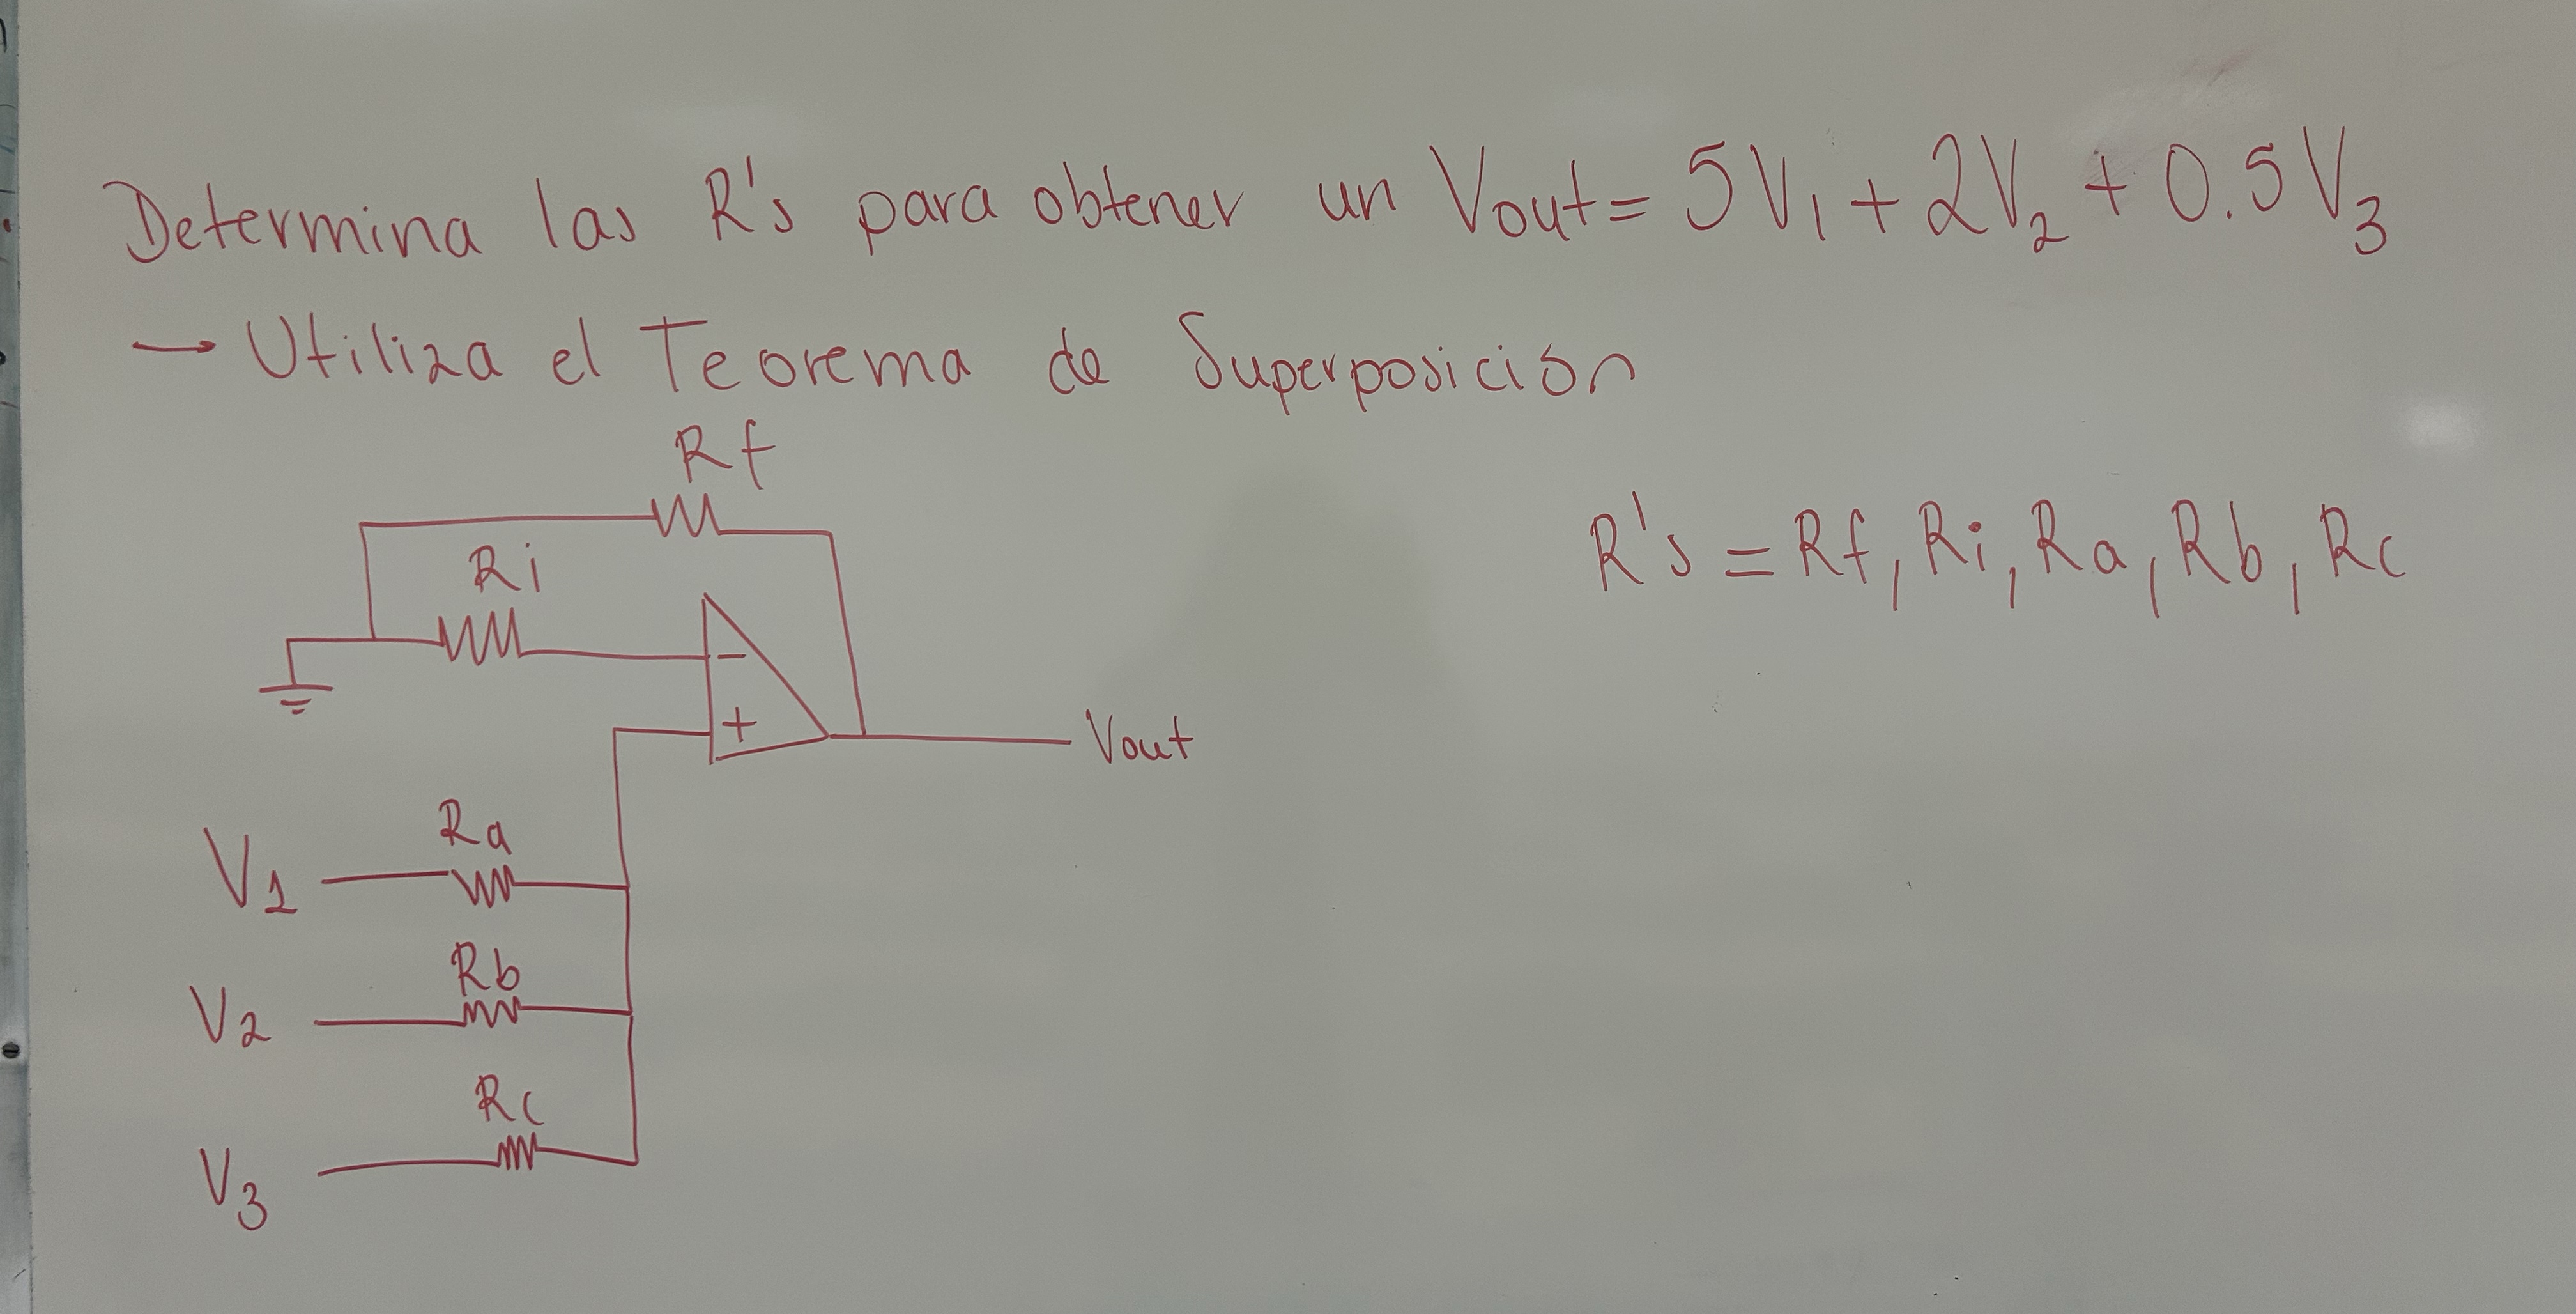 Determina las R's para obtener un Vout = 5V1 + 2V2 + 0.5V3
→ Utiliza el Teorema de Superposición
Rf
R's = Rf, Ri, Ra, Rb, Rc
Ri
-
+
Vout
Ra
V1
Rb
V2
Rc
V3